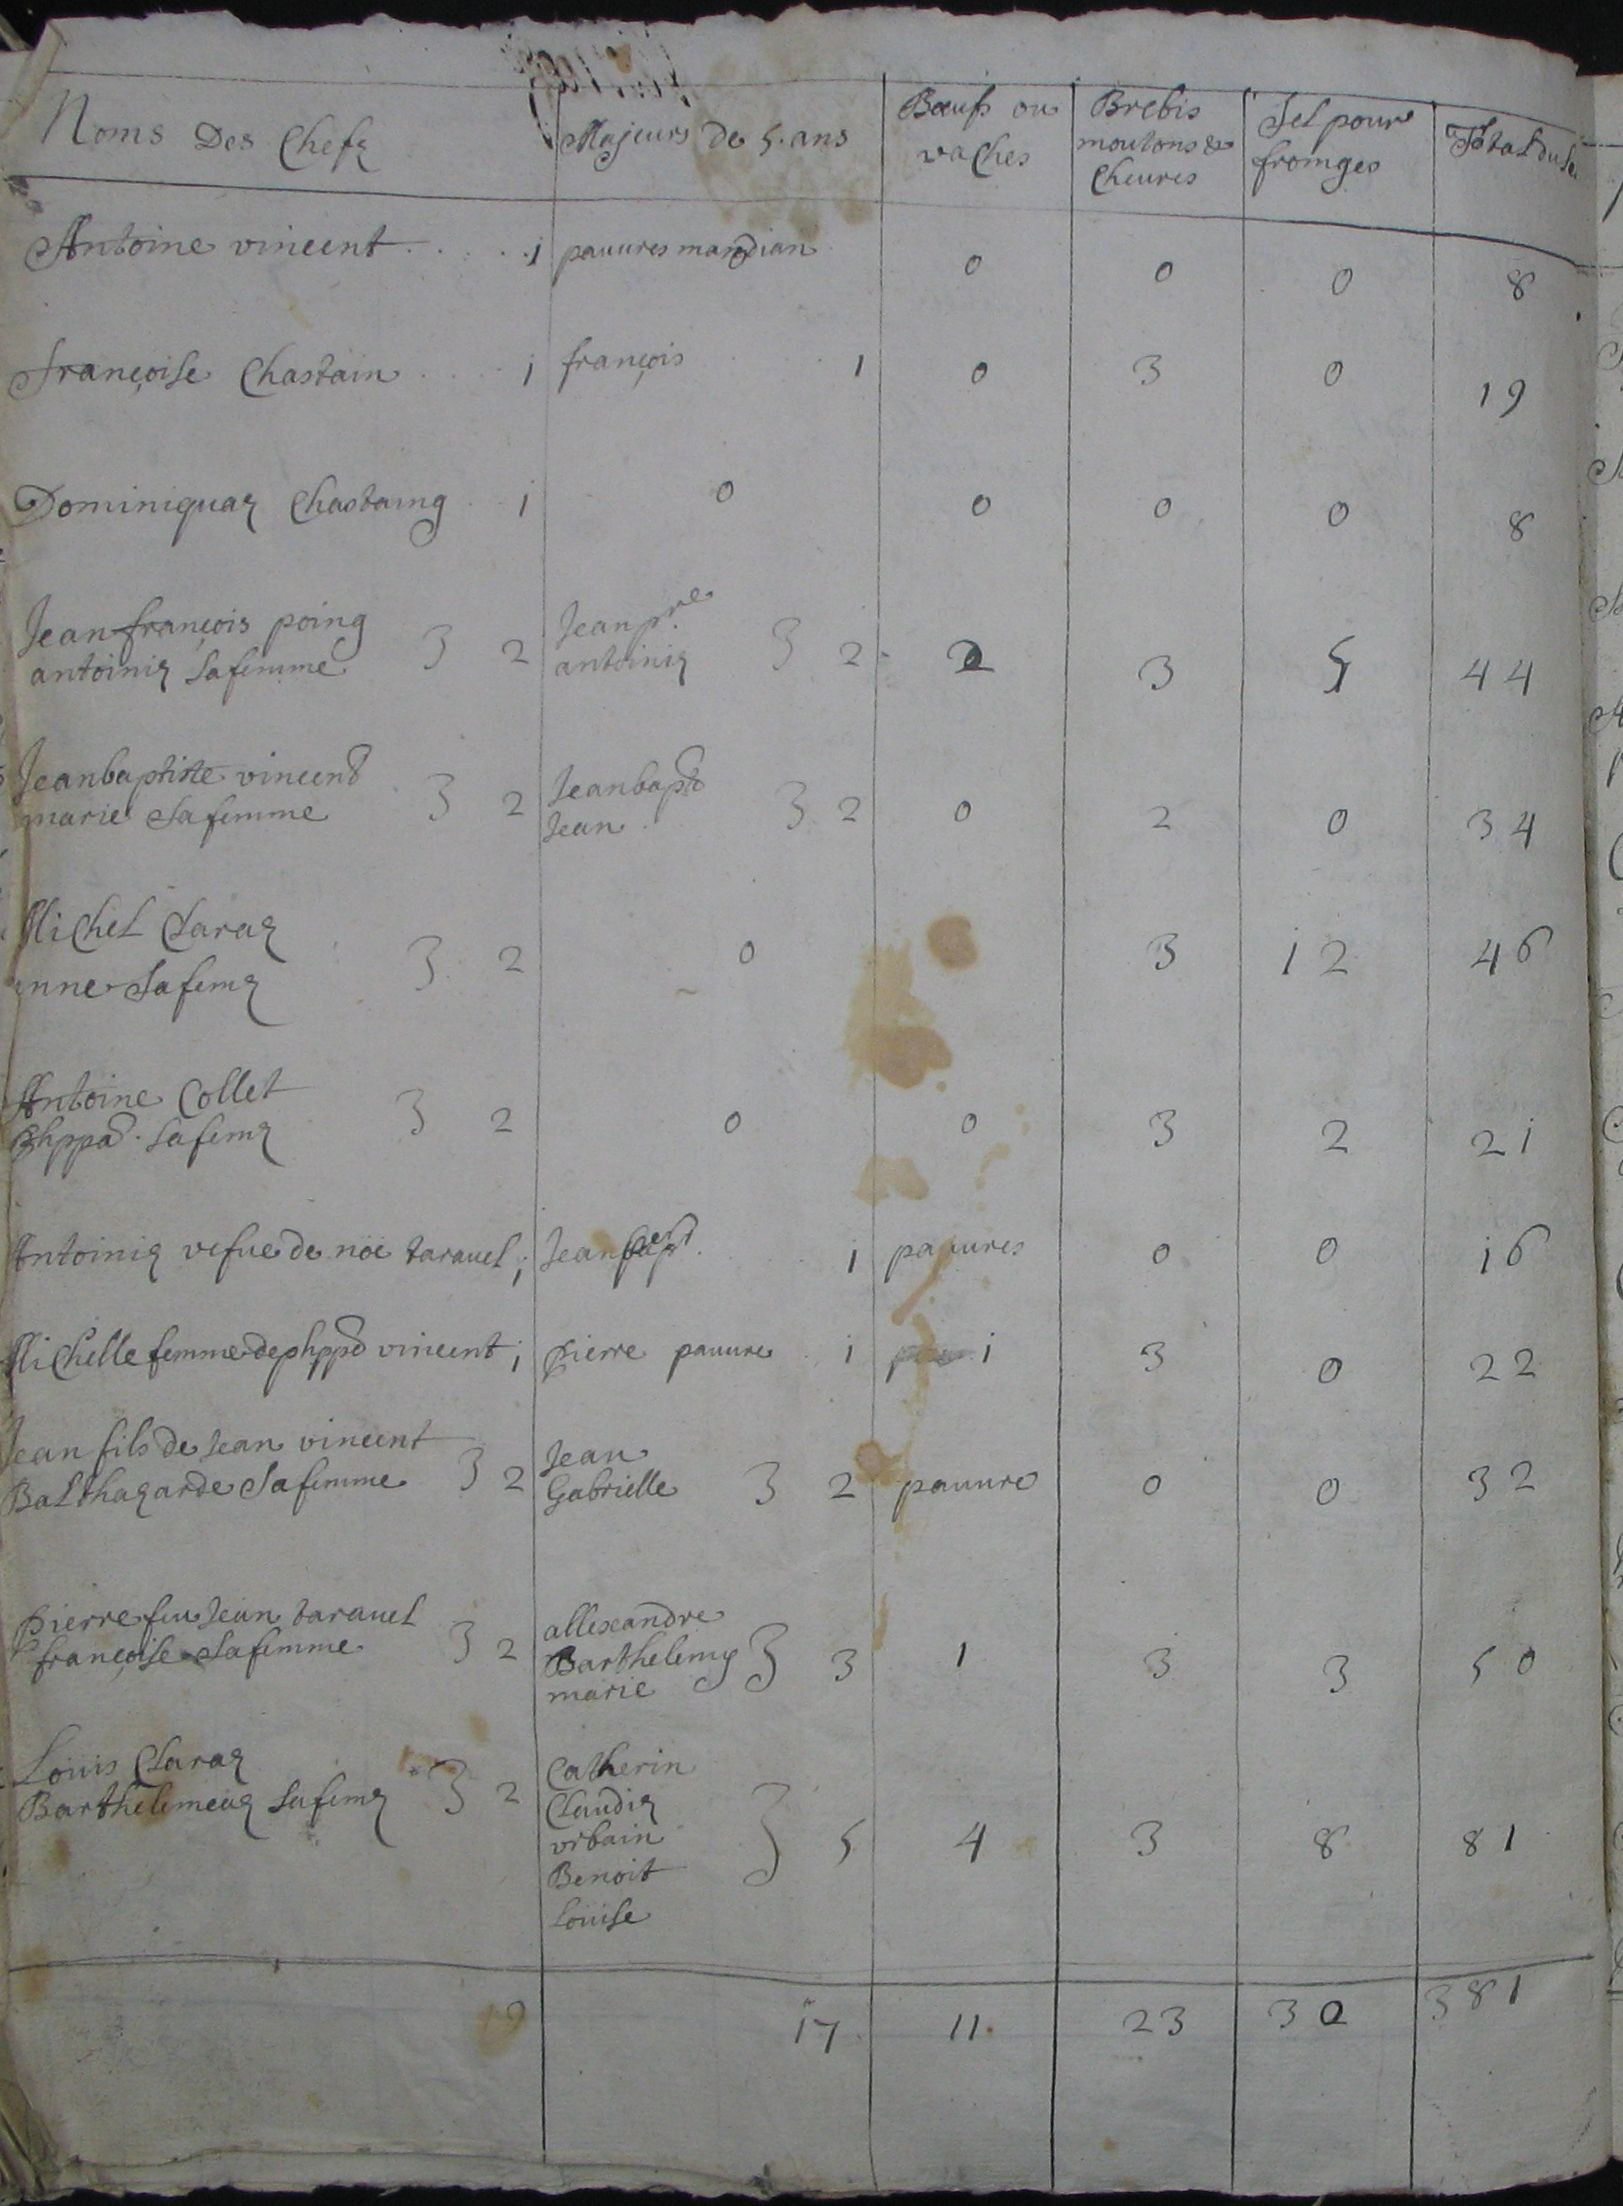 Noms Des Chefz Majeurs de 5. ans Bœufs ou vaches Brebis moutons & Cheures Sel pour fromges Total du
Antoine vincent 1 pauures mandian 0 0 0 8
françoise Chastain 1 françois 1 0 3 0 19
Dominiquaz Chastaing 1 0 0 0 0 8
Jean françois poing
antoiniz sa femme } 2 Jean pre
antoiniz } 2 2 3 5 44
Jean baptiste vincend
marie sa femme } 2 Jean bapt
Jean } 2 0 2 0 34
Michel Claraz
anne sa femz } 2 0 3 12 46
Antoine Collet
phppa. sa femz } 2 0 0 3 2 21
Antoiniz vefue de noë tarauel 1 Jean bapt 1 pauures 0 0 16
Michelle femme de phppe vincent 1 pierre pauure 1 1 3 0 22
Jean fils de Jean vincent
Balthazarde sa femme } 2 Jean
Gabrielle } 2 pauure 0 0 32
pierre feu Jean tarauel
françoise sa femme } 2 allexandre
Barthelemy
marie } 3 1 3 3 50
Louis Claraz
Barthelemeaz sa femz } 2 Catherin
Claudiz
vrbain
Benoit
Louise } 5 4 3 8 81
19 17 11 23 30 381